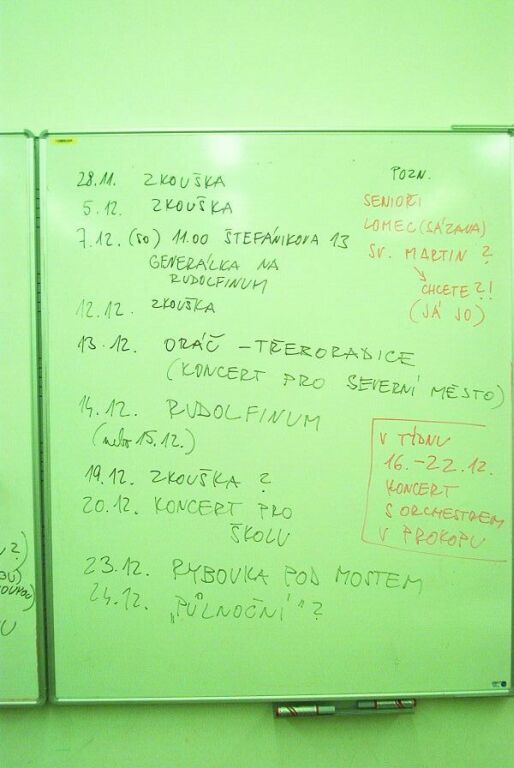 28.11. ZKOUŠKA
5.12. ZKOUŠKA
7.12. (SO) 11.00 ŠTEFÁNIKOVA 13
GENERÁLKA NA
RUDOLFINUM
12.12. ZKOUŠKA
13.12. ORÁČ – TŘEBORADICE
(KONCERT PRO SEVERNÍ MĚSTO)
14.12. RUDOLFINUM
(nebo 15.12.)
19.12. ZKOUŠKA ?
20.12. KONCERT PRO
ŠKOLU
23.12. RYBOVKA POD MOSTEM
24.12. „PŮLNOČNÍ“ ?
POZN.
SENIOŘI
LOMEC (SÁZAVA)
SV. MARTIN ?
CHCETE ?!
(JÁ JO)
V TÝDNU
16.–22.12.
KONCERT
S ORCHESTREM
V PROKOPU